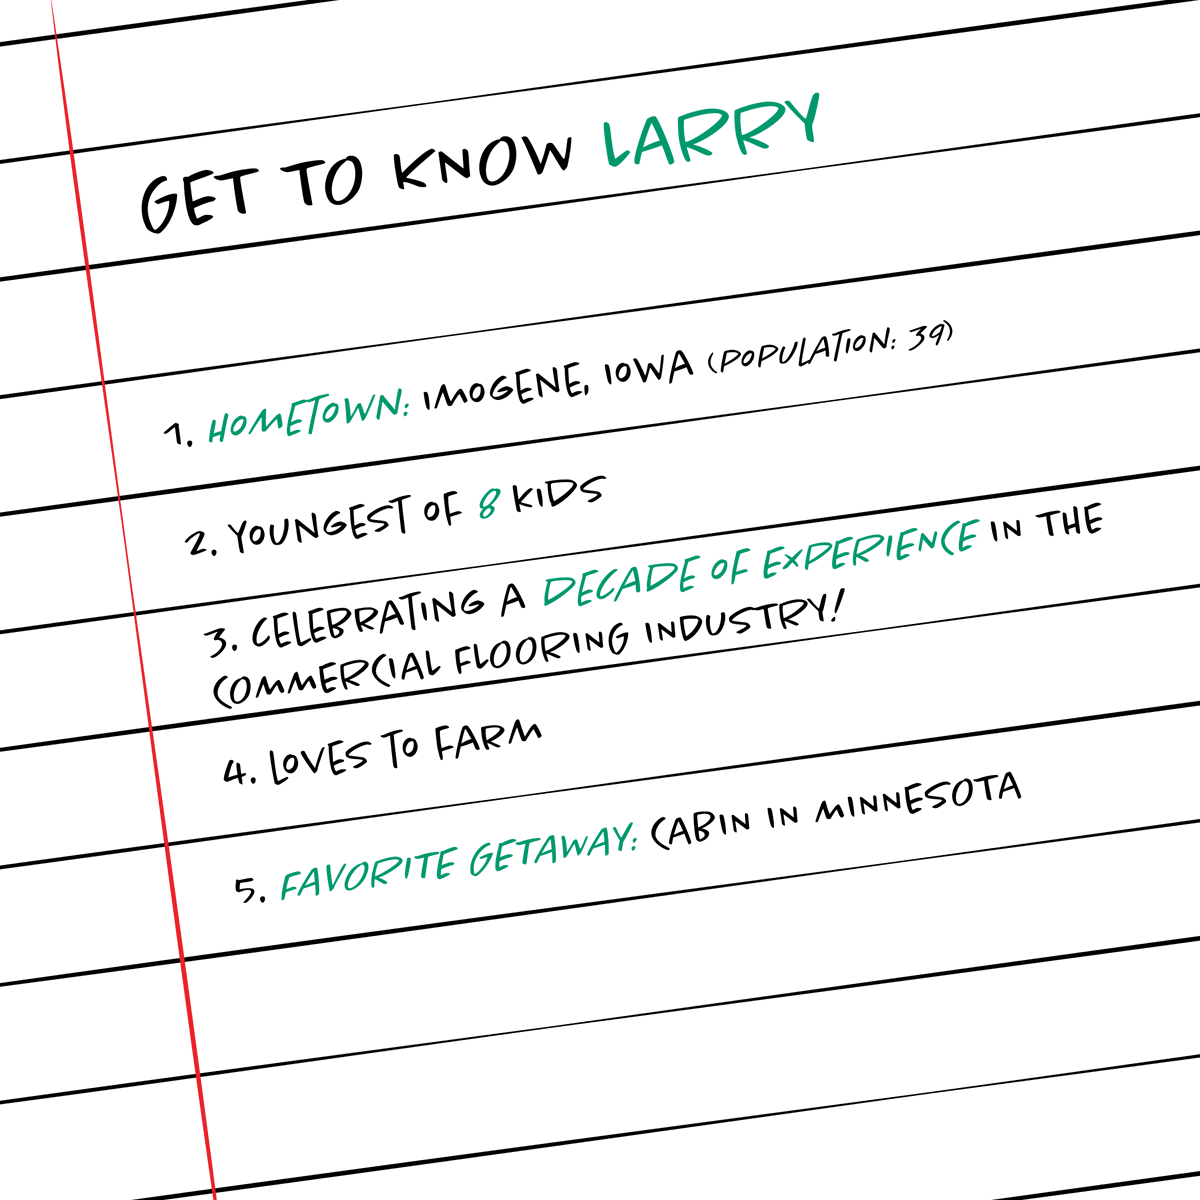 GET TO KNOW LARRY
1. HOMETOWN: IMOGENE, IOWA (POPULATION: 39)
2. YOUNGEST OF 8 KIDS
3. CELEBRATING A DECADE OF EXPERIENCE IN THE
COMMERCIAL FLOORING INDUSTRY!
4. LOVES TO FARM
5. FAVORITE GETAWAY: CABIN IN MINNESOTA